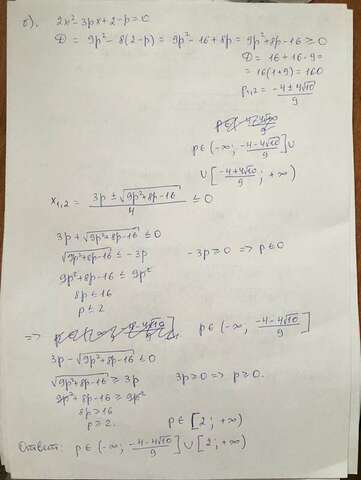 б). 2x² - 3px + 2 - p = 0
D = 9p² - 8(2-p) = 9p² - 16 + 8p = 9p² + 8p - 16 ≥ 0
D = 16 + 16·9 =
= 16(1+9) = 160
p₁,₂ = (-4 ± 4√10)/9
p ∈ (-∞; (-4-4√10)/9] ∪
∪ [(-4+4√10)/9; +∞)
x₁,₂ = (3p ± √(9p²+8p-16))/4 ≤ 0
3p + √(9p²+8p-16) ≤ 0
√(9p²+8p-16) ≤ -3p -3p ≥ 0 => p ≤ 0
9p² + 8p - 16 ≤ 9p²
8p ≤ 16
p ≤ 2
=> p ∈ (-∞; (-4-4√10)/9]
3p - √(9p²+8p-16) ≤ 0
√(9p²+8p-16) ≥ 3p 3p ≥ 0 => p ≥ 0.
9p² + 8p - 16 ≥ 9p²
8p ≥ 16
p ≥ 2. p ∈ [2; +∞)
Ответ: p ∈ (-∞; (-4-4√10)/9] ∪ [2; +∞)